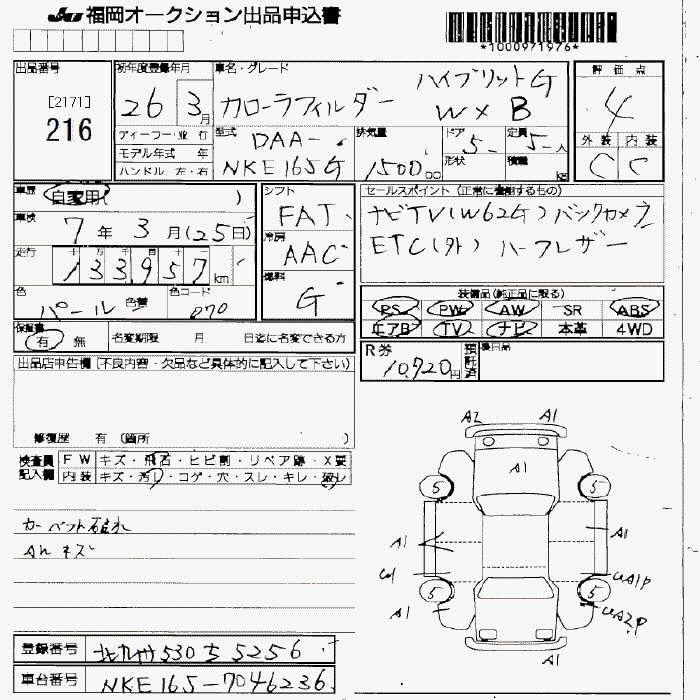 JU 福岡オークション出品申込書
*1000971976*
出品番号
[2171]
216
初年度登録年月
26 3月
車名・グレード
ハイブリットG
カローラフィルダー W×B
評価点
4
外装 内装
C C
ディーラー・並行
モデル年式 年
ハンドル 左・右
型式
DAA-
NKE165G
排気量
1500cc
ドア
5
形状
定員
5人
積載 kg
車歴
自家用( )
車検
7年3月(25日)
走行
十 万 千 百 十 一
133957km
色
パール
色替
色コード
070
シフト
FAT
冷房
AAC
燃料
G
セールスポイント(正常に機動するもの)
ナビTV(W62G)バックカメラ
ETC(外) ハーフレザー
装備品(純正品に限る)
PS PW AW SR ABS
エアB TV ナビ 本革 4WD
保証書
有 無
名変期限 月 日迄に名変できる方
R券
10,720円
預託済
後日品
出品店申告欄(不良内容・欠品など具体的に記入して下さい)
修復歴 有(箇所 )
検査員記入欄
FW キズ・飛石・ヒビ割・リペア跡・X要
内装 キズ・汚れ・コゲ・穴・スレ・キレ・破れ
AWキズ
A2 A1
A1
5 5
A1 A1
UA1P
5 5
A1 UA2P
A1
登録番号
北九州530ち5256
車台番号
NKE165-7046236